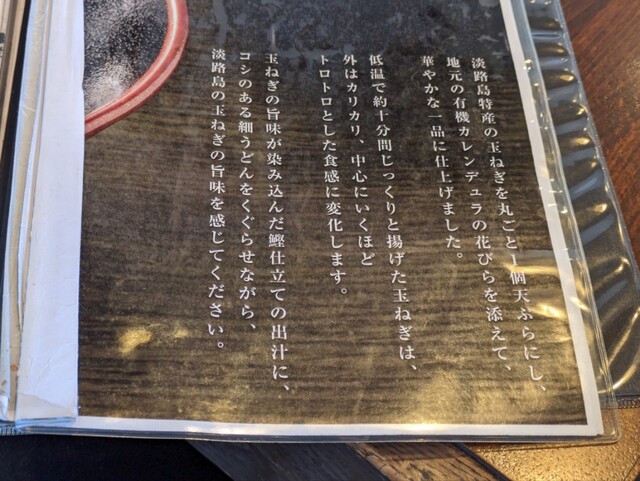 淡路島特産の玉ねぎを丸ごと1個天ぷらにし、
地元の有機カレンデュラの花びらを添えて、
華やかな一品に仕上げました。
低温で約十分間じっくりと揚げた玉ねぎは、
外はカリカリ、中心にいくほど
トロトロとした食感に変化します。
玉ねぎの旨味が染み込んだ鰹仕立ての出汁に、
コシのある細うどんをくぐらせながら、
淡路島の玉ねぎの旨味を感じてください。